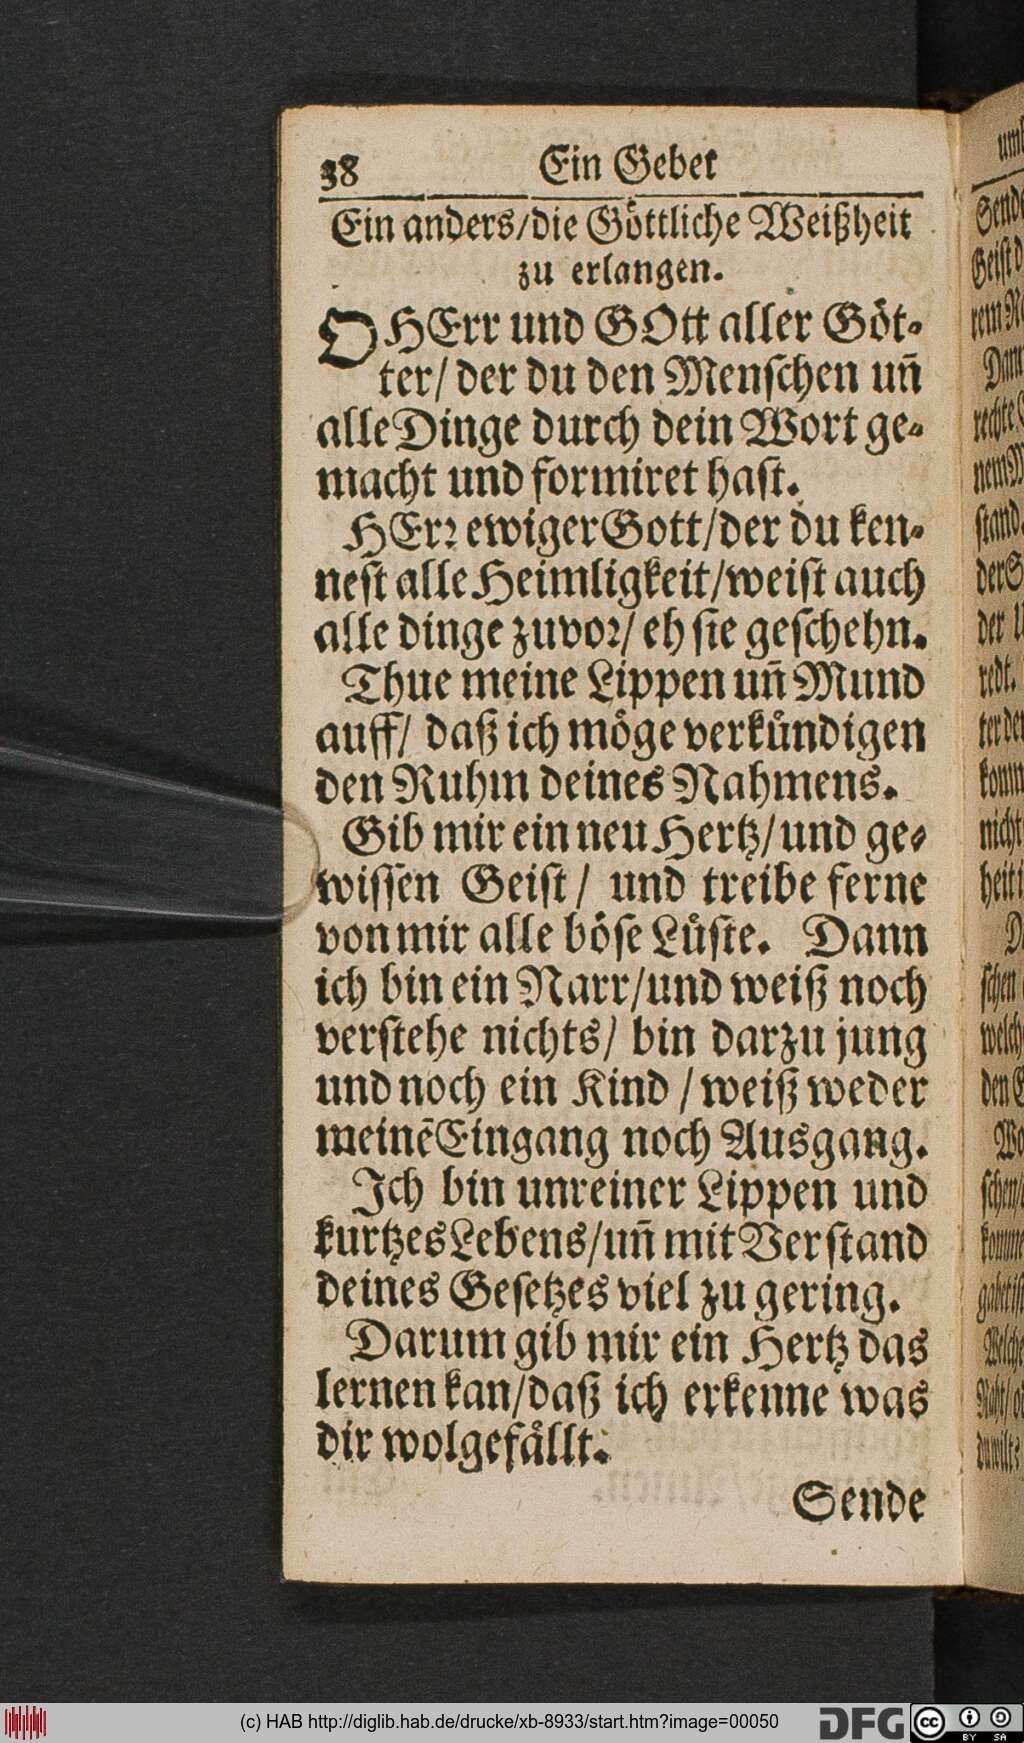 38 Ein Gebet
Ein anders/die Göttliche Weißheit
zu erlangen.
O HErr und GOtt aller Göt-
ter/ der du den Menschen uñ
alle Dinge durch dein Wort ge-
macht und formiret hast.
HErr ewiger Gott/der du ken-
nest alle Heimligkeit/weist auch
alle dinge zuvor/ eh sie geschehn.
Thue meine Lippen uñ Mund
auff/ daß ich möge verkündigen
den Ruhm deines Nahmens.
Gib mir ein neu Hertz/und ge-
wissen Geist/ und treibe ferne
von mir alle böse Lüste. Dann
ich bin ein Narr/und weiß noch
verstehe nichts/ bin darzu jung
und noch ein Kind/weiß weder
meinẽ Eingang noch Ausgang.
Ich bin unreiner Lippen und
kurtzes Lebens/uñ mit Verstand
deines Gesetzes viel zu gering.
Darum gib mir ein Hertz das
lernen kan/daß ich erkenne was
dir wolgefällt.
Sende
(c) HAB http://diglib.hab.de/drucke/xb-8933/start.htm?image=00050
DFG
cc BY SA